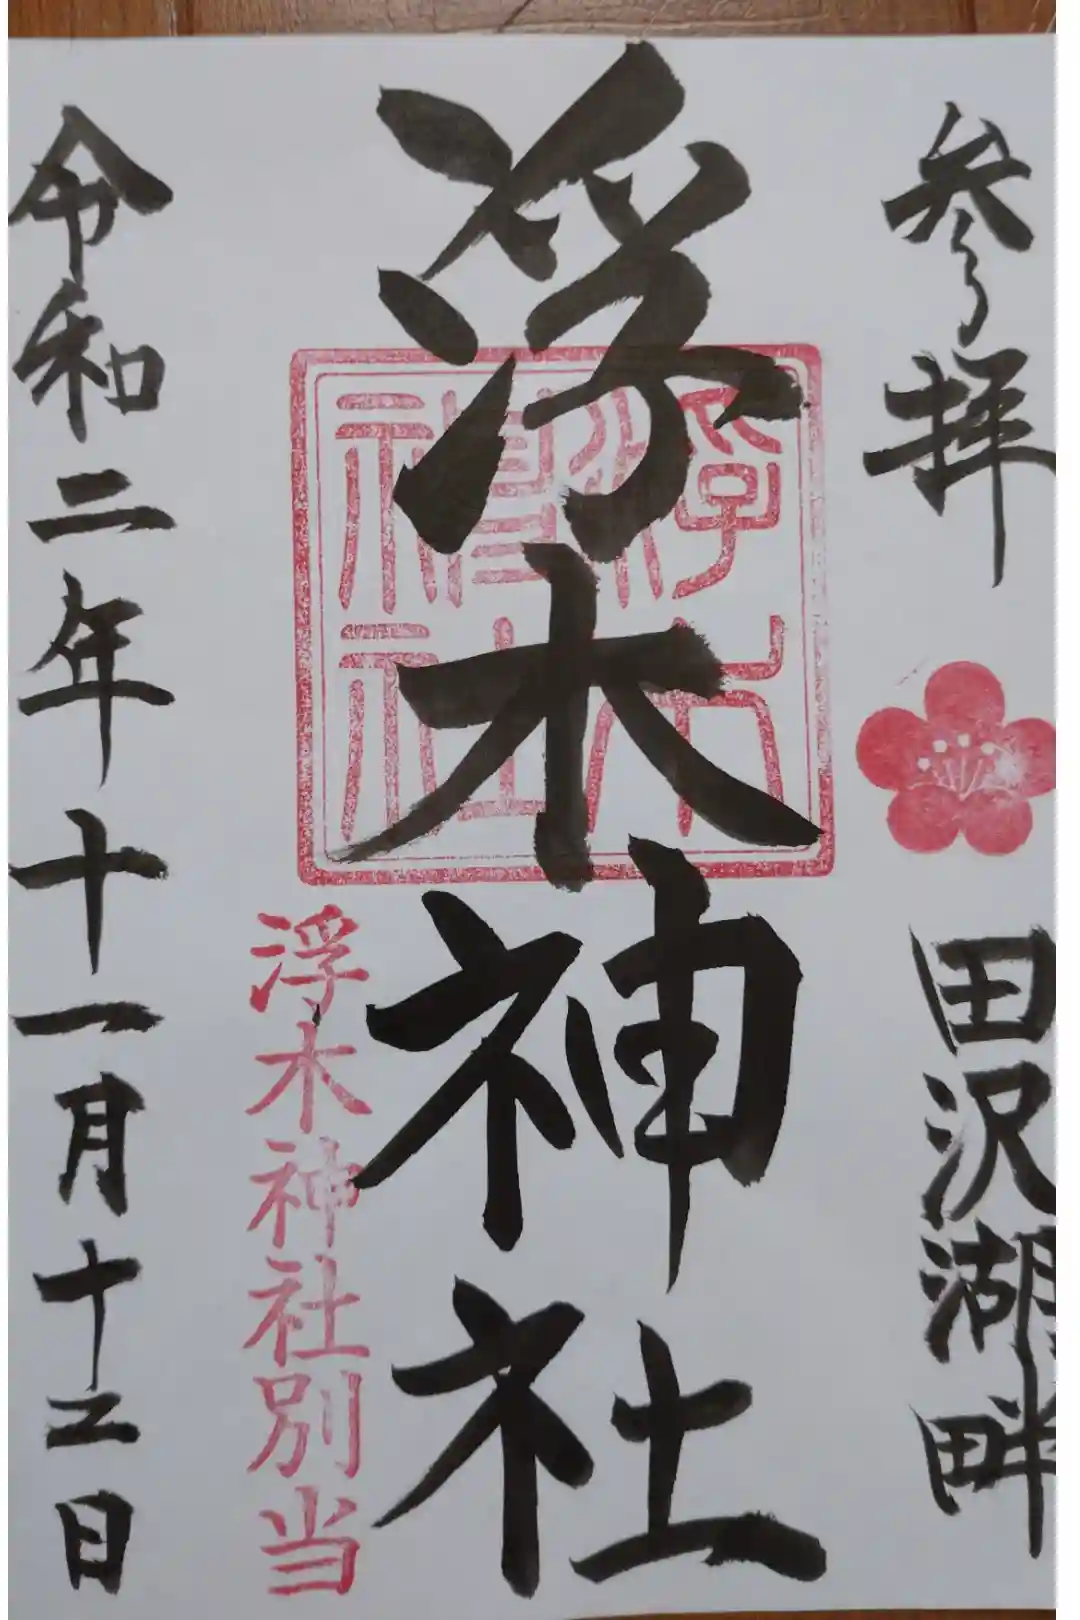 参拝
田沢湖畔
浮木神社
浮木神社
浮木神社別当
令和二年十一月十二日